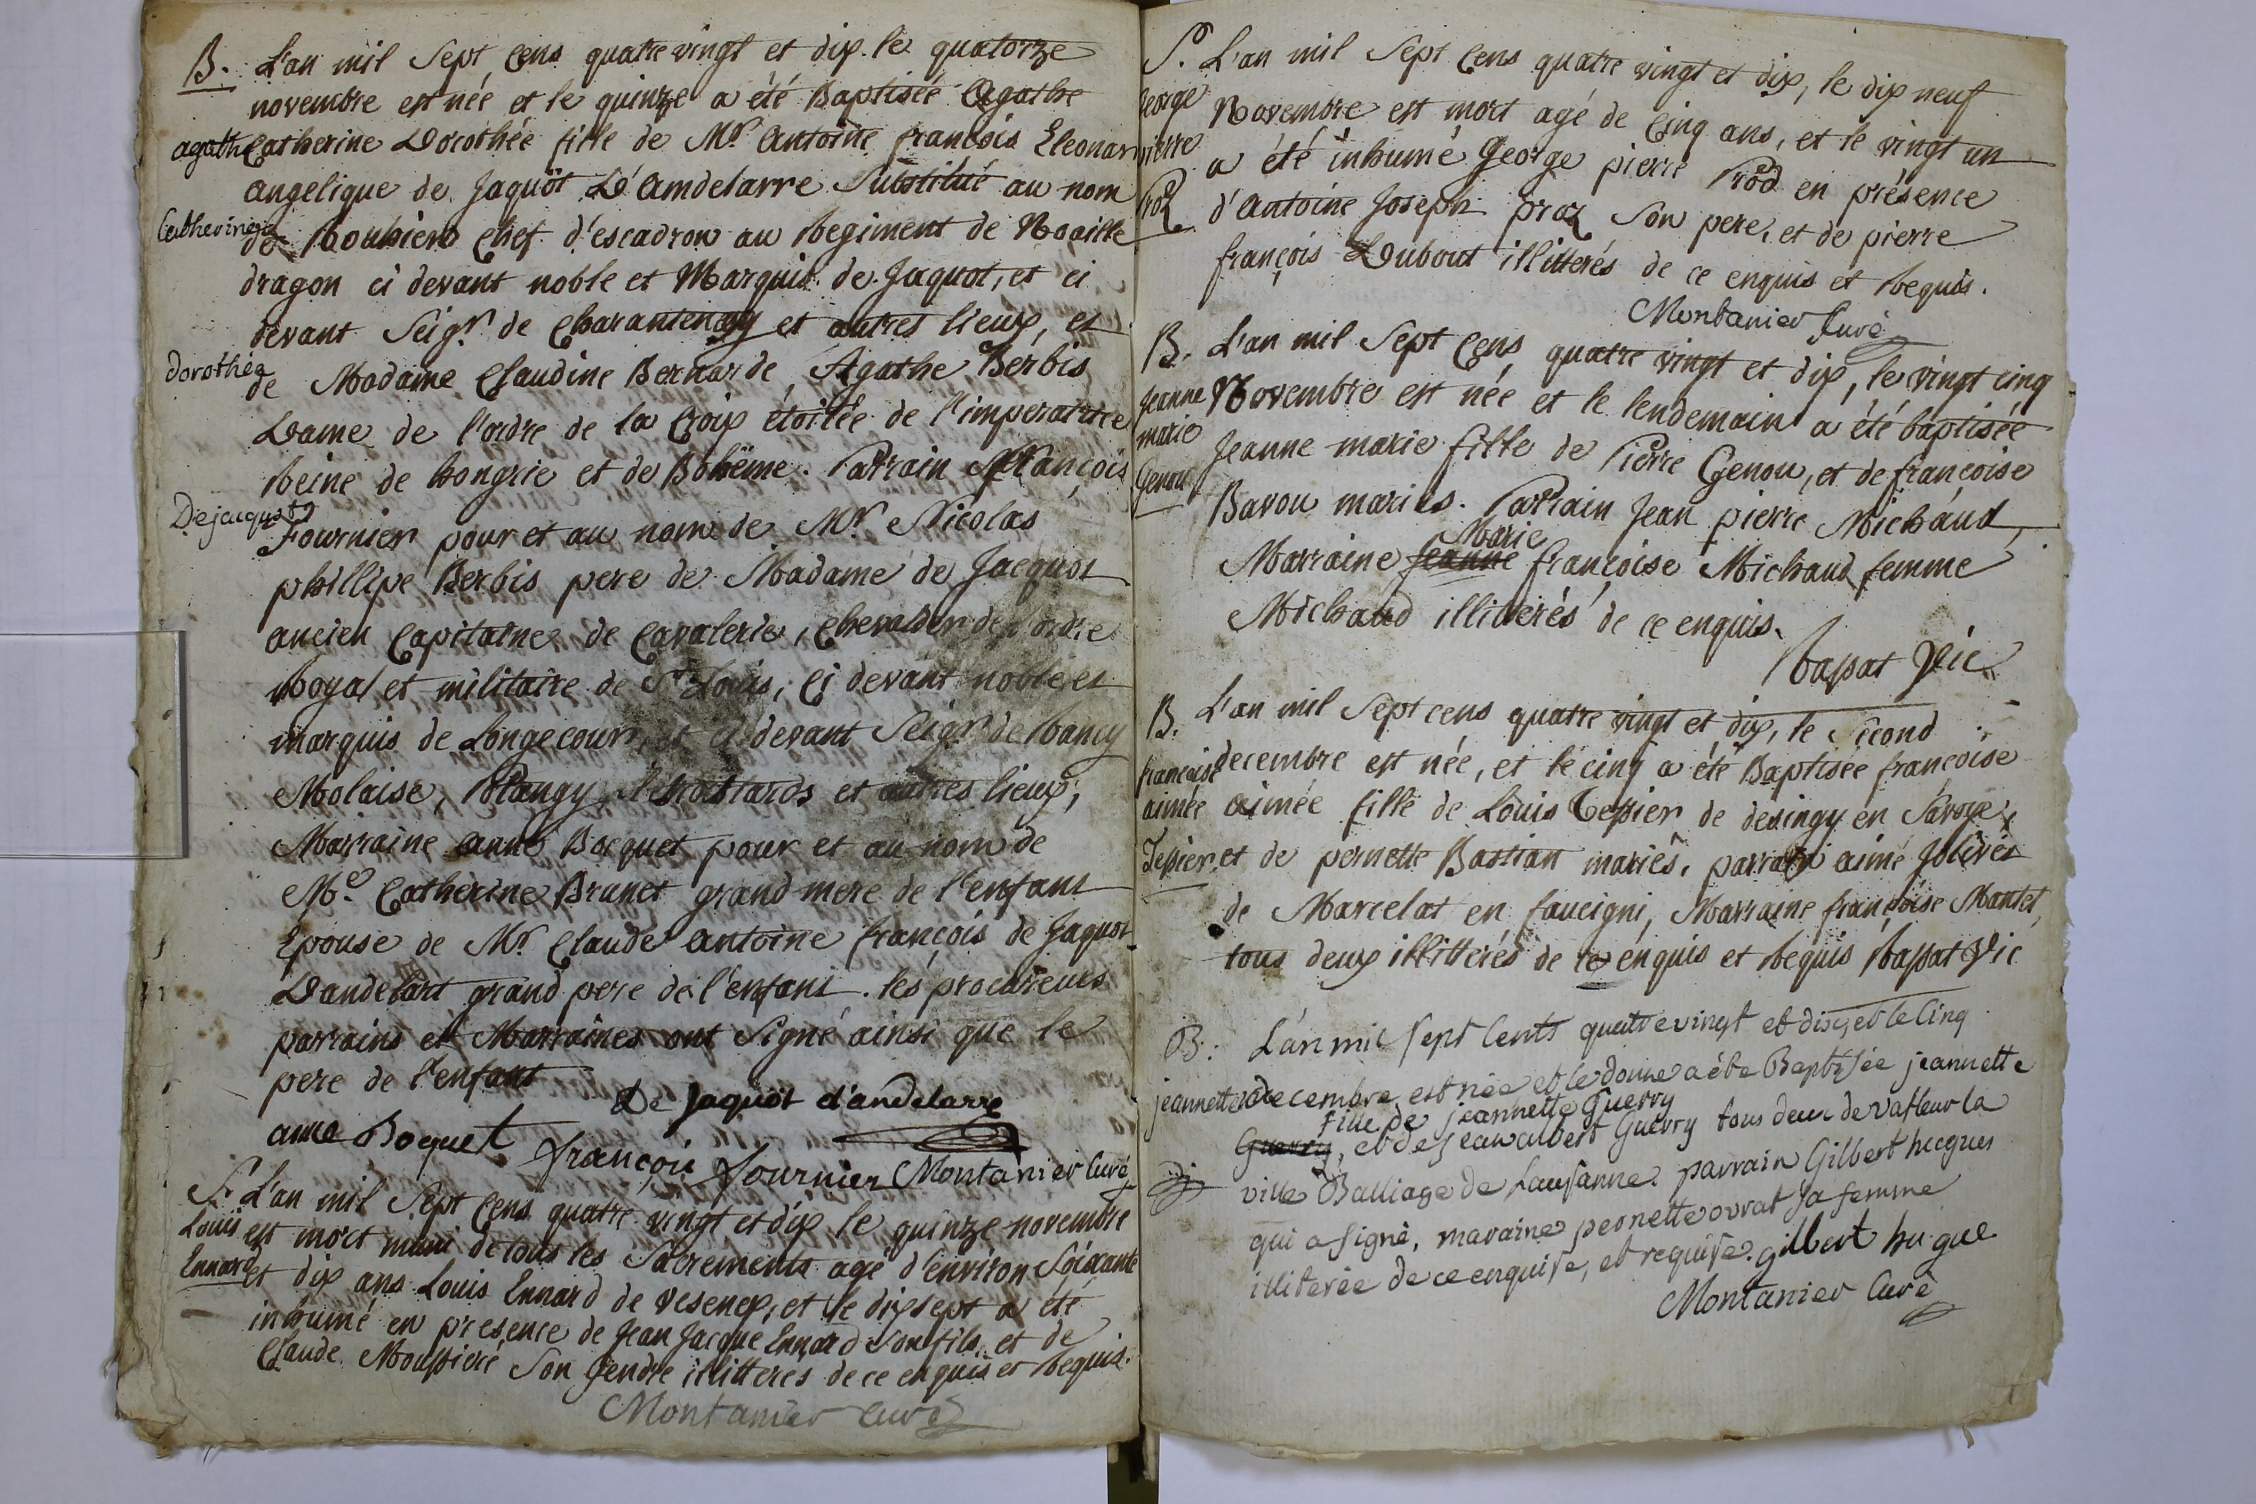 B. L'an mil Sept Cens quatre vingt et dix le quatorze
novembre est née et le quinze a été Baptisée Agathe
agathe Catherine Dorothée fille de Mr Antoine françois Eleonar
angelique de Jaquôt D'Amdelarre Substitué au nom
Catherine de Rouhier Chef d'escadron au Regiment de Noaille
dragon ci devant noble et Marquis de Jaquot, et ci
devant Seigr de Charantenay et autres lieux, et
dorothée de Madame Claudine Bernarde Agathe Berbis
Dame de l'ordre de la Croix étoilée de l'imperatrice
Reine de hongrie et de Bohëme. Parrain françois
De jacquot Fournier pour et au nom de Mr Nicolas
phillipe Berbis pere de Madame de Jacquot
ancien Capitaine de Cavalerie, Chevalier de l'ordre
Royal et militaire de St Louis, Ci devant noble et
marquis de Longecour, et ci devant Seigr de Rancy
Molaise, et autres lieux,
Marraine anne Bocquet pour et au nom de
Me Catherine Brunet grand mere de l'enfant
Epouse de Mr Claude antoine françois de Jaquot
Dandelart grand pere de l'enfant. les procureurs
parrains et Marraines ont Signé ainsi que le
pere de l'enfant
De Jaquôt d'andelarre
anne Boquet françois fournier Montanier Curé
S. L'an mil Sept Cens quatre vingt et dix le quinze novembre
Louis est mort muni de tous les Sacrements agé d'environ Soixante
Ennard et dix ans Louis Ennard de Vesenex, et le dix sept a été
inhumé en presence de Jean Jacque Ennard Son fils, et de
Claude Son gendre illitteres de ce enquis et Requis.
Montanier curé
S. L'an mil Sept Cens quatre vingt et dix, le dix neuf
George Novembre est mort agé de Cinq ans, et le vingt un
pierre a été inhumé George pierre Prod en présence
Proz d'Antoine Joseph proz Son pere, et de pierre
françois Dubout illitterés de ce enquis et Requis.
Montanier Curé
B. L'an mil Sept Cens quatre vingt et dix, le vingt cinq
Jeanne Novembre est née et le lendemain a été baptisée
marie Jeanne marie fille de Pierre Genou, et de françoise
Genou Bavou mariés. Parrain Jean pierre Michaud,
Marie
Marraine Jeanne françoise Michaud femme
Michaud illiterés de ce enquis.
Rassat Vic
B. L'an mil Sept cens quatre vingt et dix, le Second
françoise decembre est née, et le cinq a été Baptisée françoise
aimée aimée fille de Louis Tessier de desingy en Savoye,
Tessier et de pernette Bastian mariés, parrain aimé Jolivet
de Marcelat en faucigni, Marraine françoise Mantet,
tous deux illitterés de ce enquis et Requis Rassat Vic
B: L'an mil sept Cents quatre vingt et dix, et le Cinq
jeannette decembre est née et le donne a été Baptisée jeannette
fille de jeannette Guerry
Guerry, et de jean albert Guerry tous deux de la
ville Balliage de Lausanne. parrain Gilbert hugues
qui a signé, maraine pernette ovrat sa femme
illiterée de ce enquise, et requise. gilbert hu gue
Montanier Curé